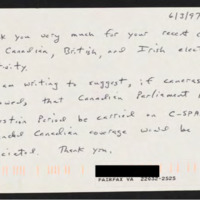 6/3/97
k you very much for your recent c
Canadian, British, and Irish elect
rsity.
am writing to suggest, if cameras
that Canadian Parliament
stion Period be carried on C-SPA
nded Canadian coverage would be
eciated. Thank you.
FAIRFAX VA 22032-2525